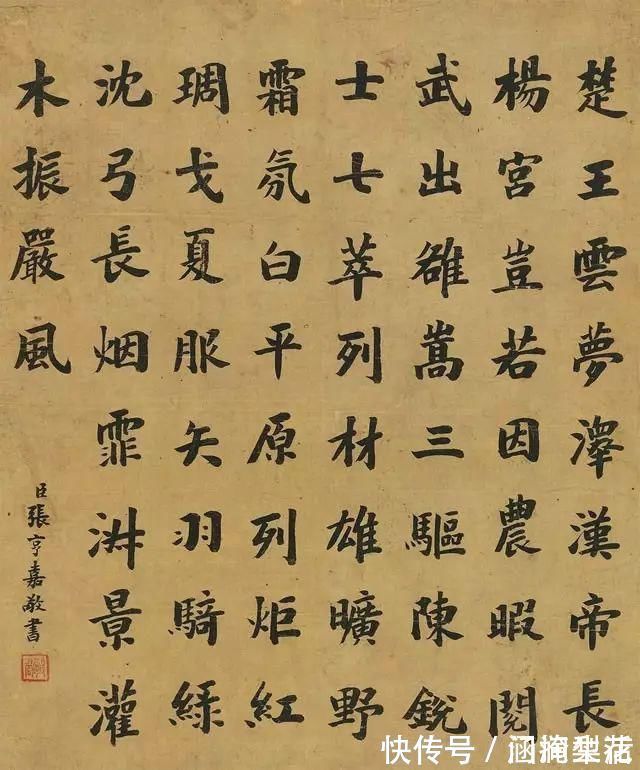 楚王雲夢澤漢帝長
楊宮豈若因農暇閱
武出雒嵩三驅陳銳
士七萃列材雄曠野
霜氛白平原列炬紅
琱戈夏服矢羽騎綠
沈弓長烟霏景灌
木振嚴風
臣張亨嘉敬書
快传号／涵